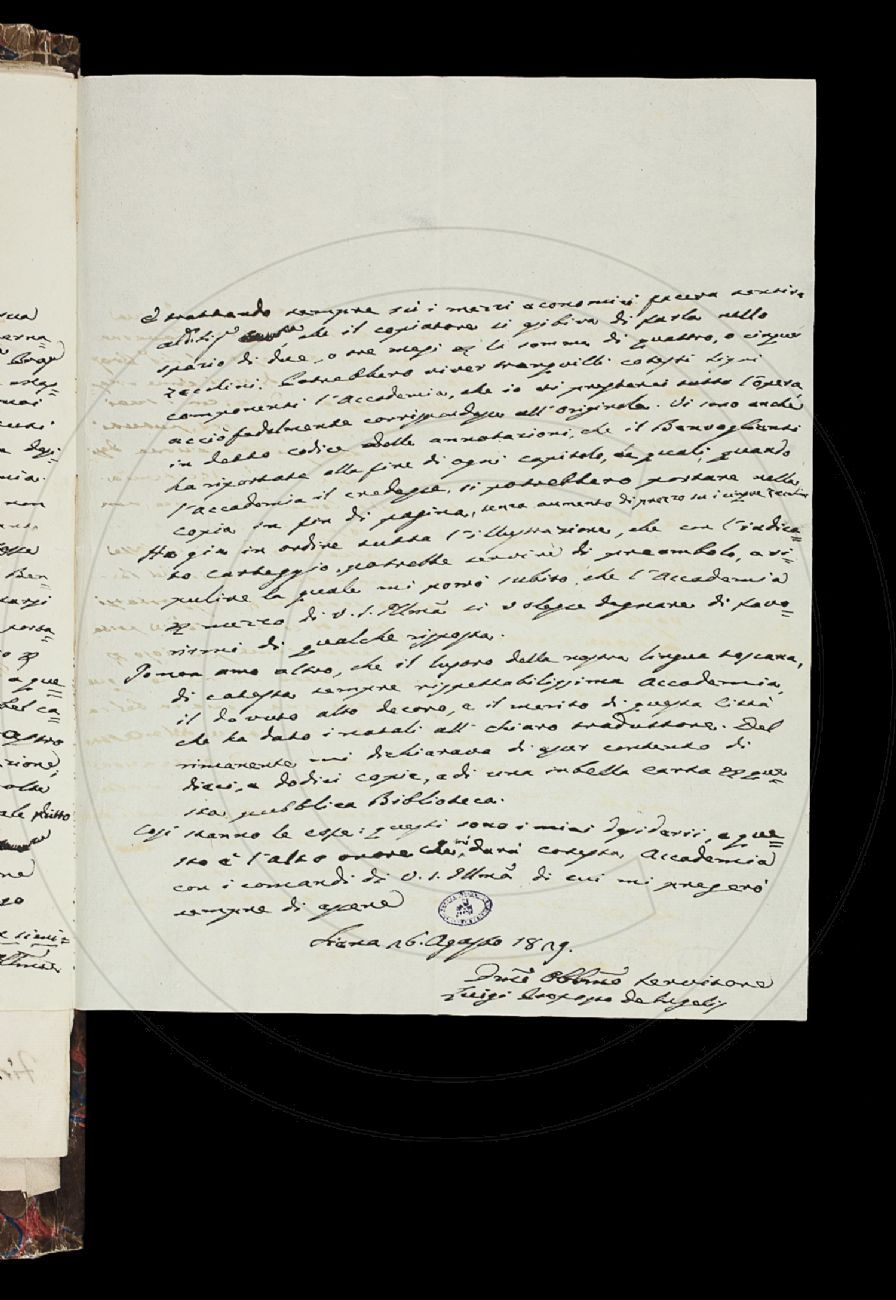 E trattando sempre sù i mezzi economici faceva sentire
che il copiatore si esibiva di farla nello
spazio di due, o tre mesi per la somma di quattro, o cinque
zecchini. Potrebbero viver tranquilli cotesti Sigri
componenti l'Accademia, che io vi presterei tutta l'opera,
acciò fedelmente corrispondesse all'originale. Vi sono anche
in detto codice delle annotazioni, che il Benvoglienti
ha riportate alla fine di ogni capitolo, le quali, quando
l'accademia il credesse, si potrebbero portare nella
copia in fin di pagina, senza aumento di prezzo su i cinque zecchini
Ho già in ordine tutta l'illustrazione, che con l'indica=
to carteggio, potrebbe servire di preambolo, a ri=
pulire la quale mi porrò subito, che l'Accademia
per mezzo di V. S. Illma si volesse degnare di favo=
rirmi di qualche risposta.
Io non amo altro, che il lustro della nostra lingua toscana,
di cotesta sempre rispettabilissima Accademia,
il dovuto alto decoro, e il merito di questa Città
che ha dato i natali all' chiaro traduttore. Del
rimanente mi dichiarava di esser contento di
dieci, o dodici copie, e di una in bella carta per que=
sta pubblica Biblioteca.
Così stanno le cose: questi sono i miei desiderii, e que=
sto è l'alto onore che mi darà cotesta Accademia
con i comandi di V. S. Illma di cui mi pregerò
sempre di essere
Siena 26. Agosto 1829.
Obblmo servitore
Luigi de Angelis